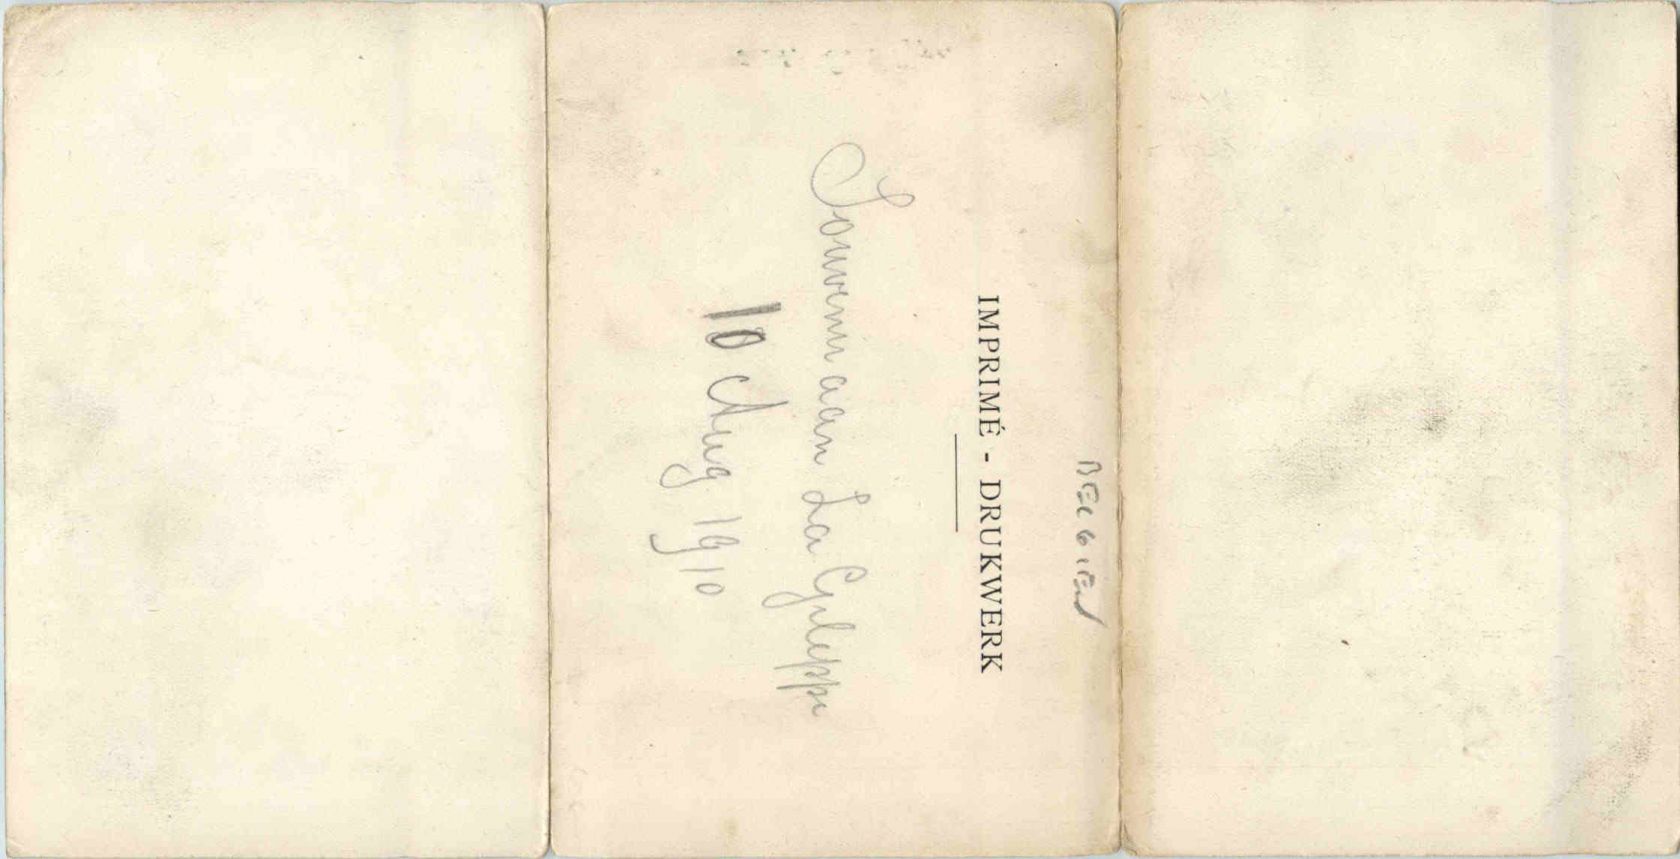 BELGIEN
IMPRIMÉ - DRUKWERK
Souvenir aan La Gileppe
10 Aug 1910